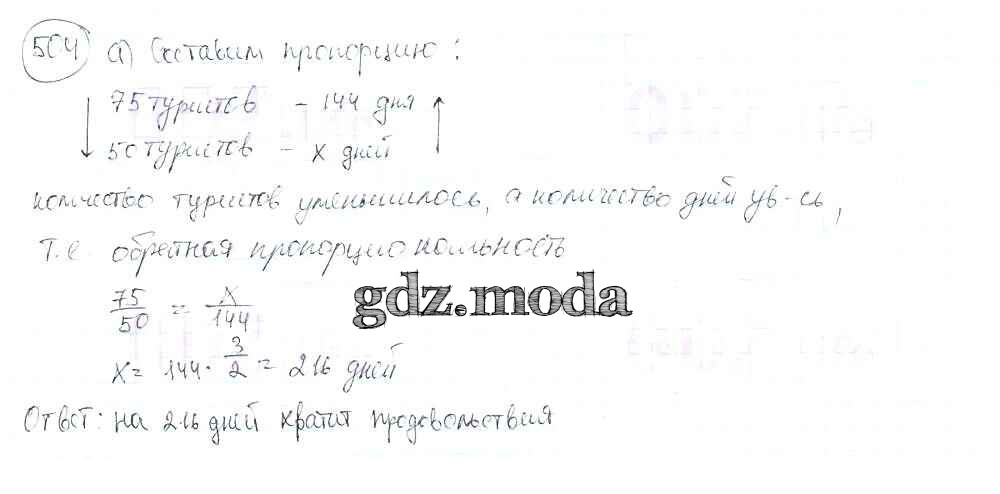 504 а) Составим пропорцию:
75 туристов - 144 дня
50 туристов - x дней
количество туристов уменьшилось, а количество дней ув-сь,
т.е. обратная пропорциональность
75/50 = x/144
gdz.moda
x = 144 · 3/2 = 216 дней
Ответ: на 216 дней хватит продовольствия